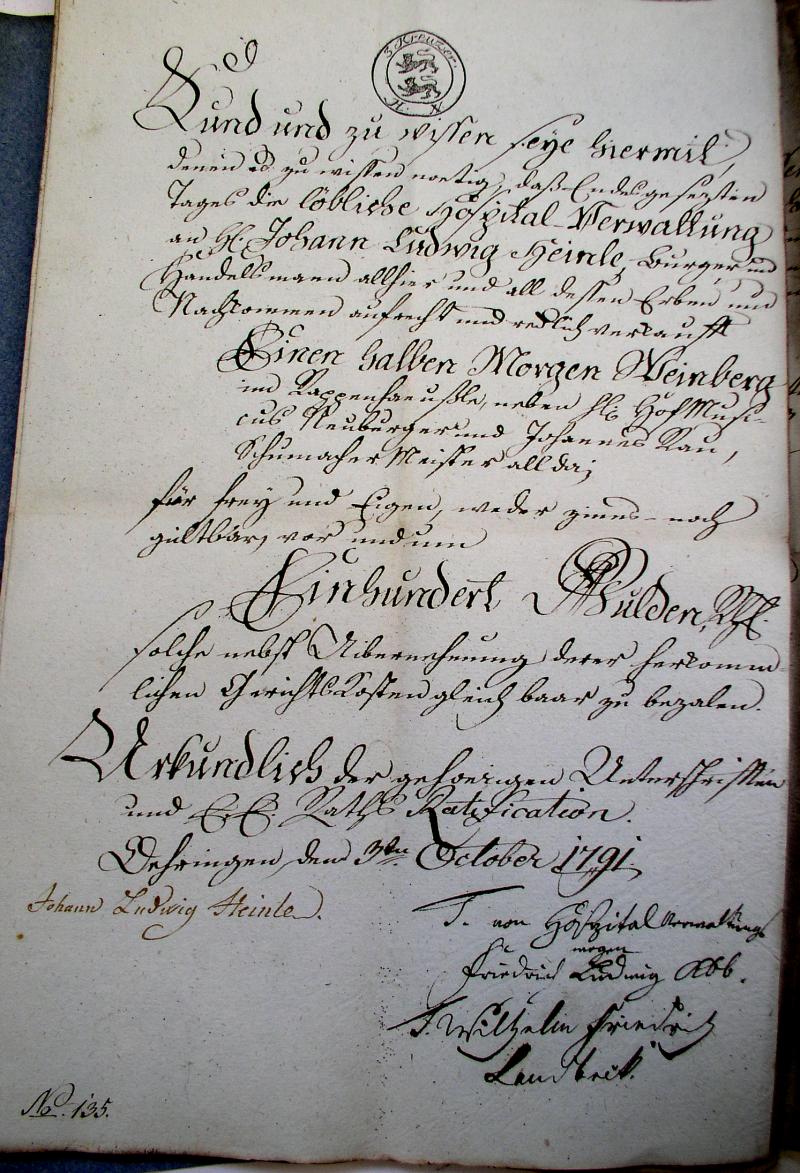 3 Kreuzer.
H. N
Kund und zu wissen seye hiermit,
denen es zu wissen noetig, daß Endesgesezten
Tages die löbliche Hospital-Verwaltung
an H. Johann Ludwig Heinle, Burger und
Handelsmann allhier und all dessen Erben und
Nachkommen aufrecht und redlich verkaufft
Einen halben Morgen Weinberg
im Rappenhaeußle, neben H. Hof Musi-
cus Neuburger und Johannes Rau,
Schumacher Meister allda;
für frey und Eigen, weder zinns- noch
gültbar, vor und um
Einhundert Gulden,
solche nebst Uibernehmung derer herkomm-
lichen Gerichts Kosten gleich baar zu bezalen.
Urkundlich der gehoerigen Unterschrifften
und E. E. Raths Ratification.
Oehringen, den 3ten October 1791.
Johann Ludwig Heinle.
T. von Hospital Verwaltungs
wegen
Friedrich Ludwig
T. Wilhelm Friedrich
No. 135.